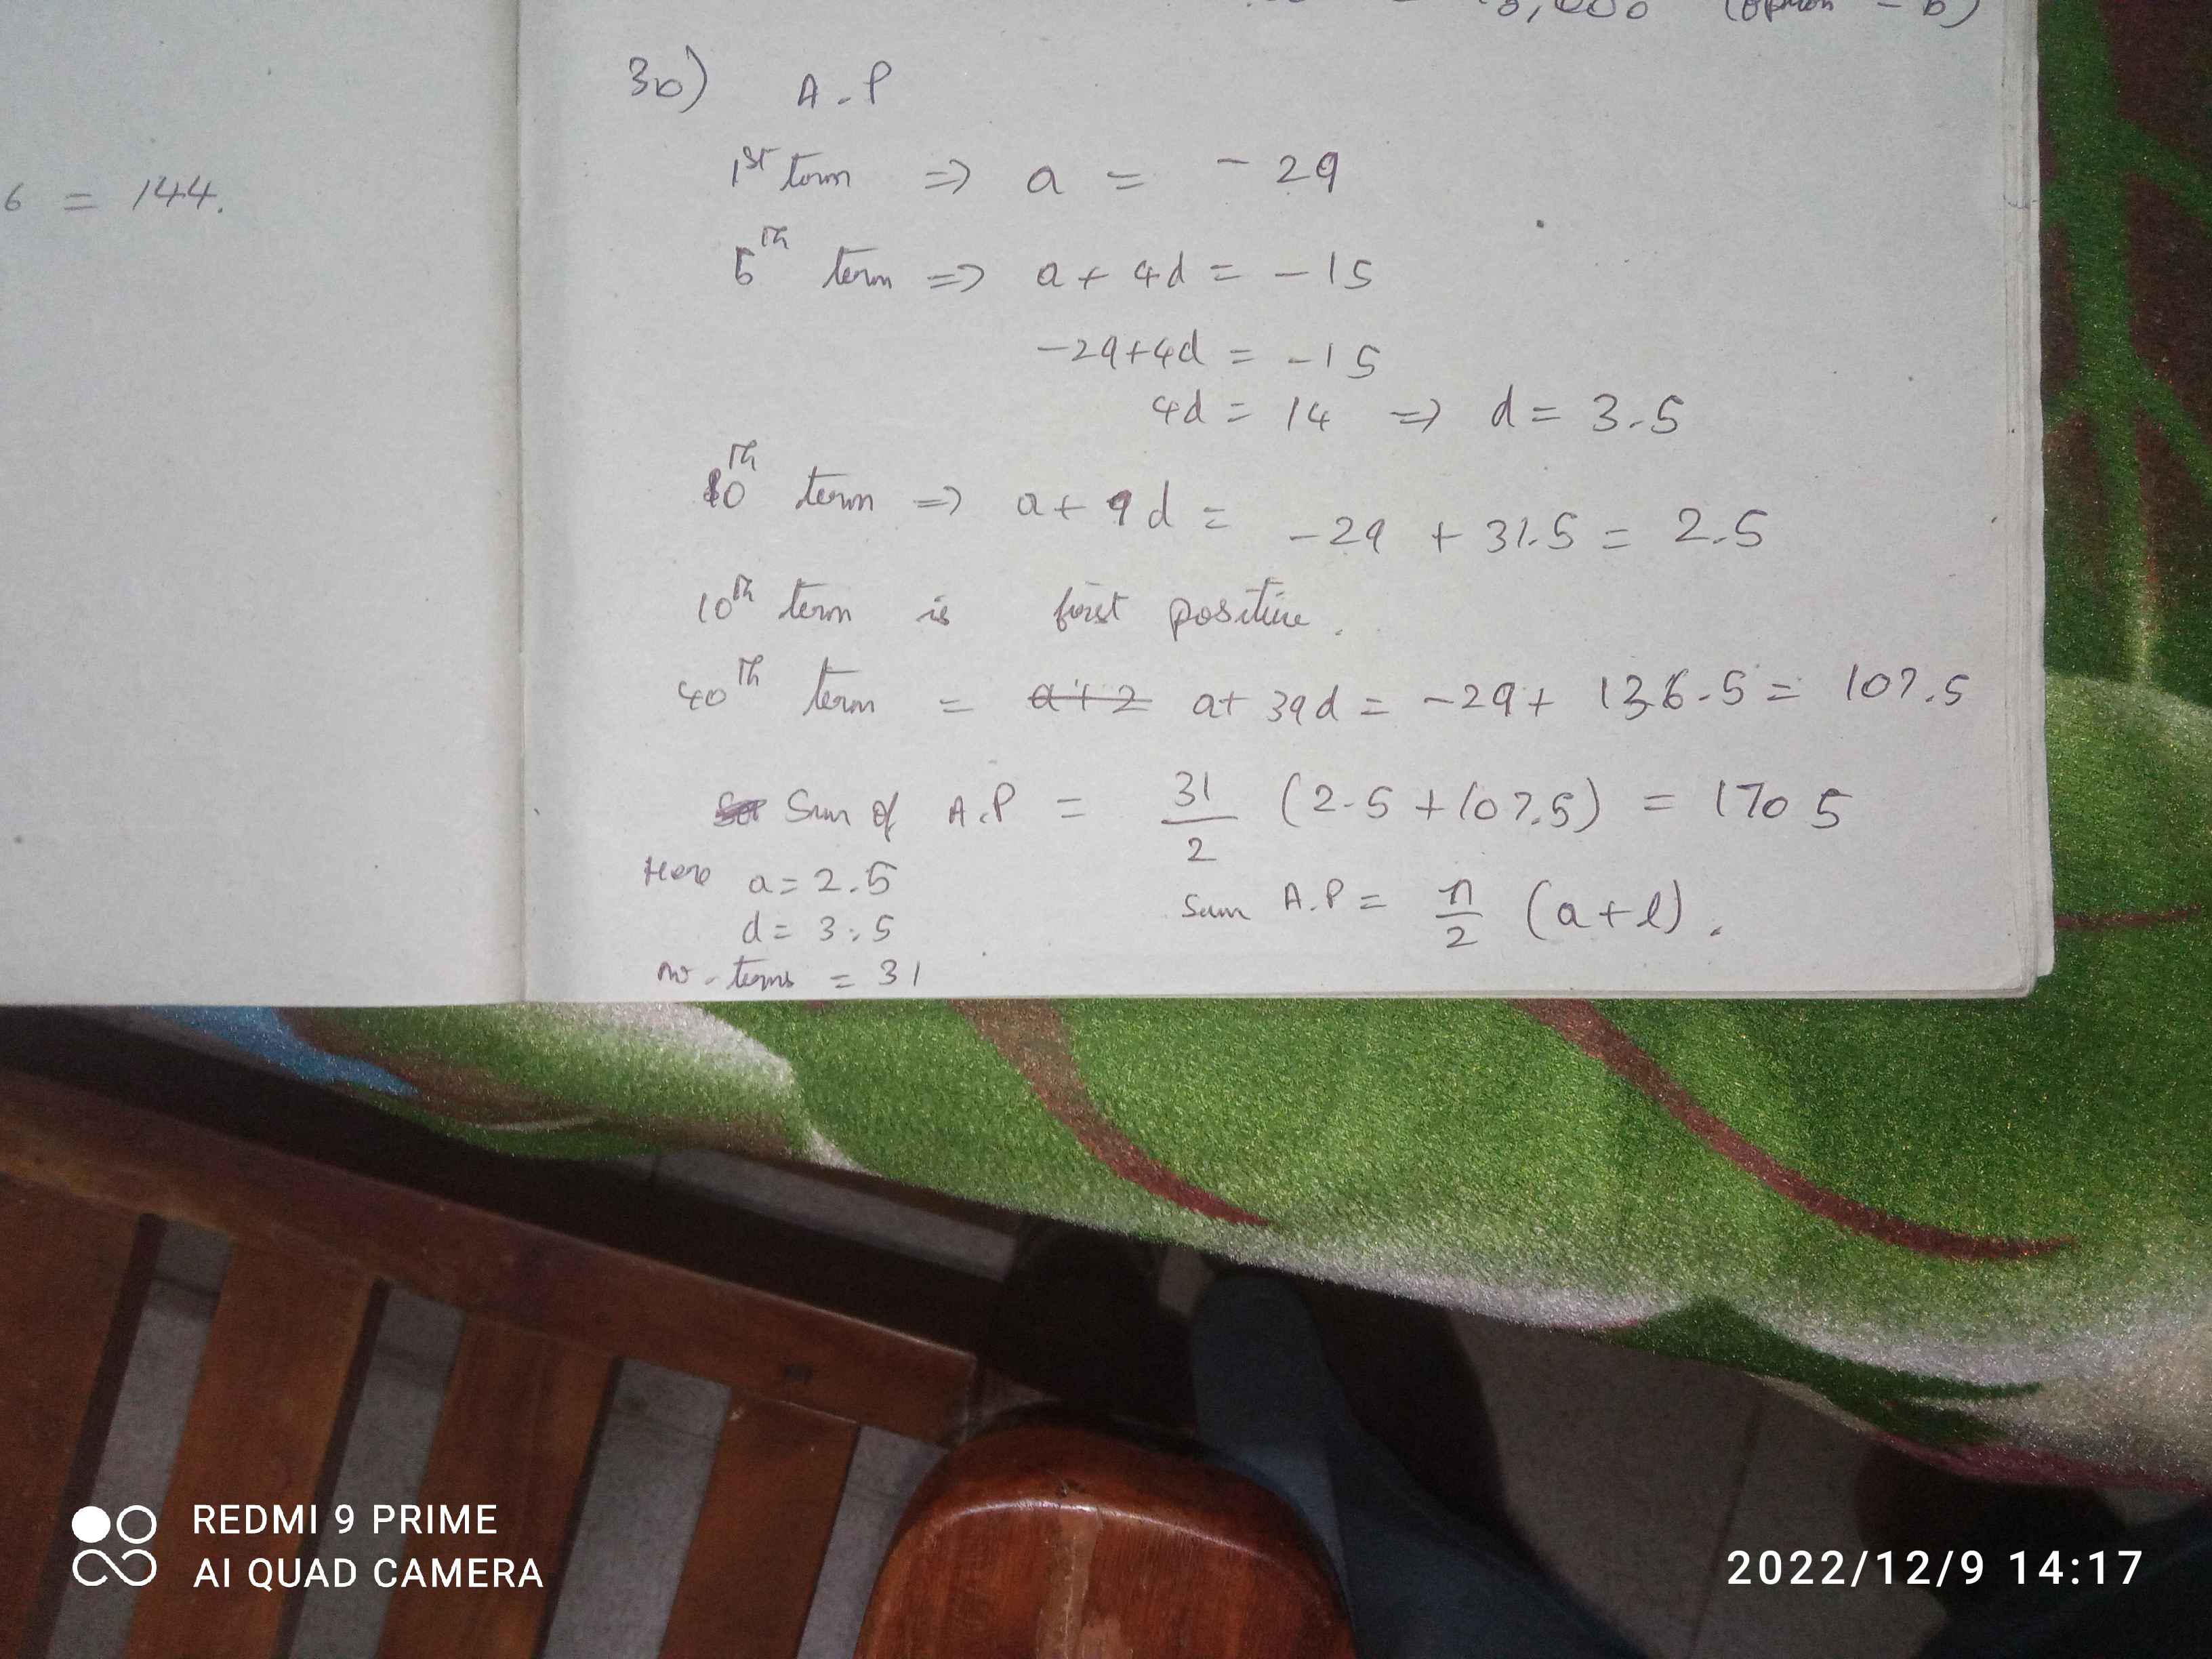 6 = 144.
(option - b)
30) A.P
1st term => a = -29
5th term => a + 4d = -15
-29+4d = -15
4d = 14 => d = 3.5
10th term => a + 9d = -29 + 31.5 = 2.5
10th term is first positive.
40th term = a+2 a+ 39d = -29+ 136.5 = 107.5
Sum of A.P = 31/2 (2.5 + 107.5) = 1705
Here a = 2.5
d = 3.5
no. terms = 31
Sum A.P = n/2 (a+l).
REDMI 9 PRIME
AI QUAD CAMERA
2022/12/9 14:17